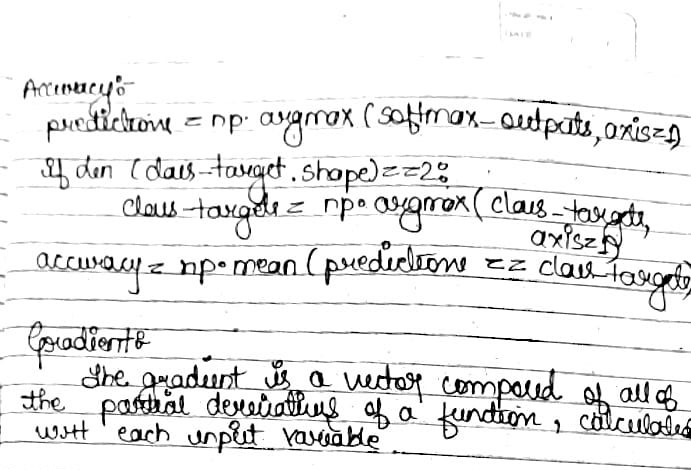 Accuracy:-
predictions = np.argmax (softmax-outputs, axis=1)
If len (class-target.shape)==2:
class-targets = np.argmax (class-targets,
axis=1)
accuracy = np.mean (predictions == class-targets)
Gradient:
The gradient is a vector composed of all of
the partial derivatives of a function, calculated
wrt each input variable.